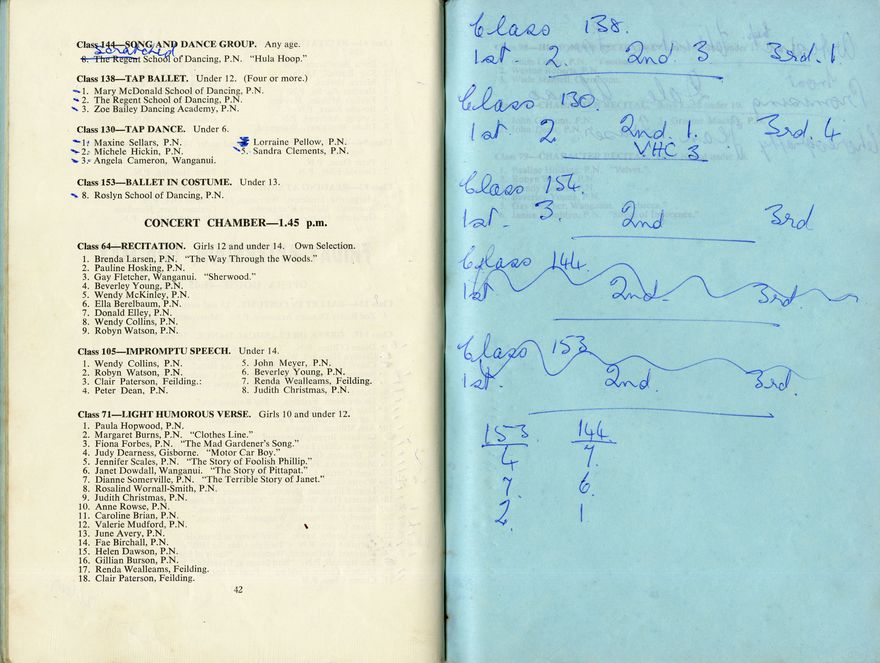 Class 144—SONG AND DANCE GROUP. Any age.
scratched
8. The Regent School of Dancing, P.N. "Hula Hoop."
Class 138—TAP BALLET. Under 12. (Four or more.)
1. Mary McDonald School of Dancing, P.N.
2. The Regent School of Dancing, P.N.
3. Zoe Bailey Dancing Academy, P.N.
Class 130—TAP DANCE. Under 6.
1. Maxine Sellars, P.N.
2. Michele Hickin, P.N.
3. Angela Cameron, Wanganui.
Lorraine Pellow, P.N.
5. Sandra Clements, P.N.
Class 153—BALLET IN COSTUME. Under 13.
8. Roslyn School of Dancing, P.N.
CONCERT CHAMBER—1.45 p.m.
Class 64—RECITATION. Girls 12 and under 14. Own Selection.
1. Brenda Larsen, P.N. "The Way Through the Woods."
2. Pauline Hosking, P.N.
3. Gay Fletcher, Wanganui. "Sherwood."
4. Beverley Young, P.N.
5. Wendy McKinley, P.N.
6. Ella Berelbaum, P.N.
7. Donald Elley, P.N.
8. Wendy Collins, P.N.
9. Robyn Watson, P.N.
Class 105—IMPROMPTU SPEECH. Under 14.
1. Wendy Collins, P.N.
2. Robyn Watson, P.N.
3. Clair Paterson, Feilding.:
4. Peter Dean, P.N.
5. John Meyer, P.N.
6. Beverley Young, P.N.
7. Renda Wealleams, Feilding.
8. Judith Christmas, P.N.
Class 71—LIGHT HUMOROUS VERSE. Girls 10 and under 12.
1. Paula Hopwood, P.N.
2. Margaret Burns, P.N. "Clothes Line."
3. Fiona Forbes, P.N. "The Mad Gardener's Song."
4. Judy Dearness, Gisborne. "Motor Car Boy."
5. Jennifer Scales, P.N. "The Story of Foolish Phillip."
6. Janet Dowdall, Wanganui. "The Story of Pittapat."
7. Dianne Somerville, P.N. "The Terrible Story of Janet."
8. Rosalind Wornall-Smith, P.N.
9. Judith Christmas, P.N.
10. Anne Rowse, P.N.
11. Caroline Brian, P.N.
12. Valerie Mudford, P.N.
13. June Avery, P.N.
14. Fae Birchall, P.N.
15. Helen Dawson, P.N.
16. Gillian Burson, P.N.
17. Renda Wealleams, Feilding.
18. Clair Paterson, Feilding.
42
Class 138.
1st. 2. 2nd. 3 3rd. 1.
Class 130.
1st 2. 2nd. 1. 3rd. 4
VHC 3
Class 154.
1st. 3. 2nd 3rd
Class 144.
1st 2nd. 3rd.
Class 153
1st. 2nd. 3rd.
153 144
4 7.
7. 6.
2. 1